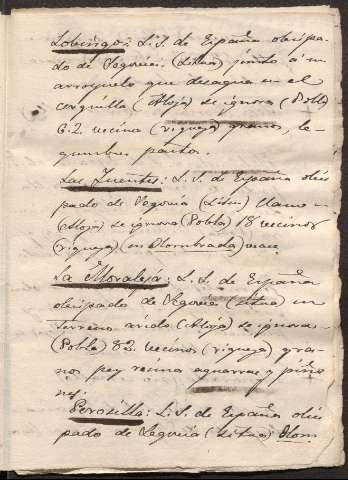 Lobingos: L. S. de España obispa-
do de Segovia (Situa) junto á un
arroyuelo que desagua en el
Cerquilla (Aloja) se ignora (Pobla
62 vecinos (riqueza) granos, le-
gumbres pasto.
Las Fuentes: L. S. de España obis-
pado de Segovia (Situa) llano
(Aloja) se ignora (Pobla) 18 vecinos
(riqueza) en Olombrada
La Moraleja: L. S. de España
obispado de Segovia (situa) en
terreno arido (Aloja) se ignora
(Pobla) 82 vecinos (riqueza) gra-
nos pez resina aguarras y piño
nes.
Perosillo: L. S. de España obis-
pado de Segovia (situa) Olom